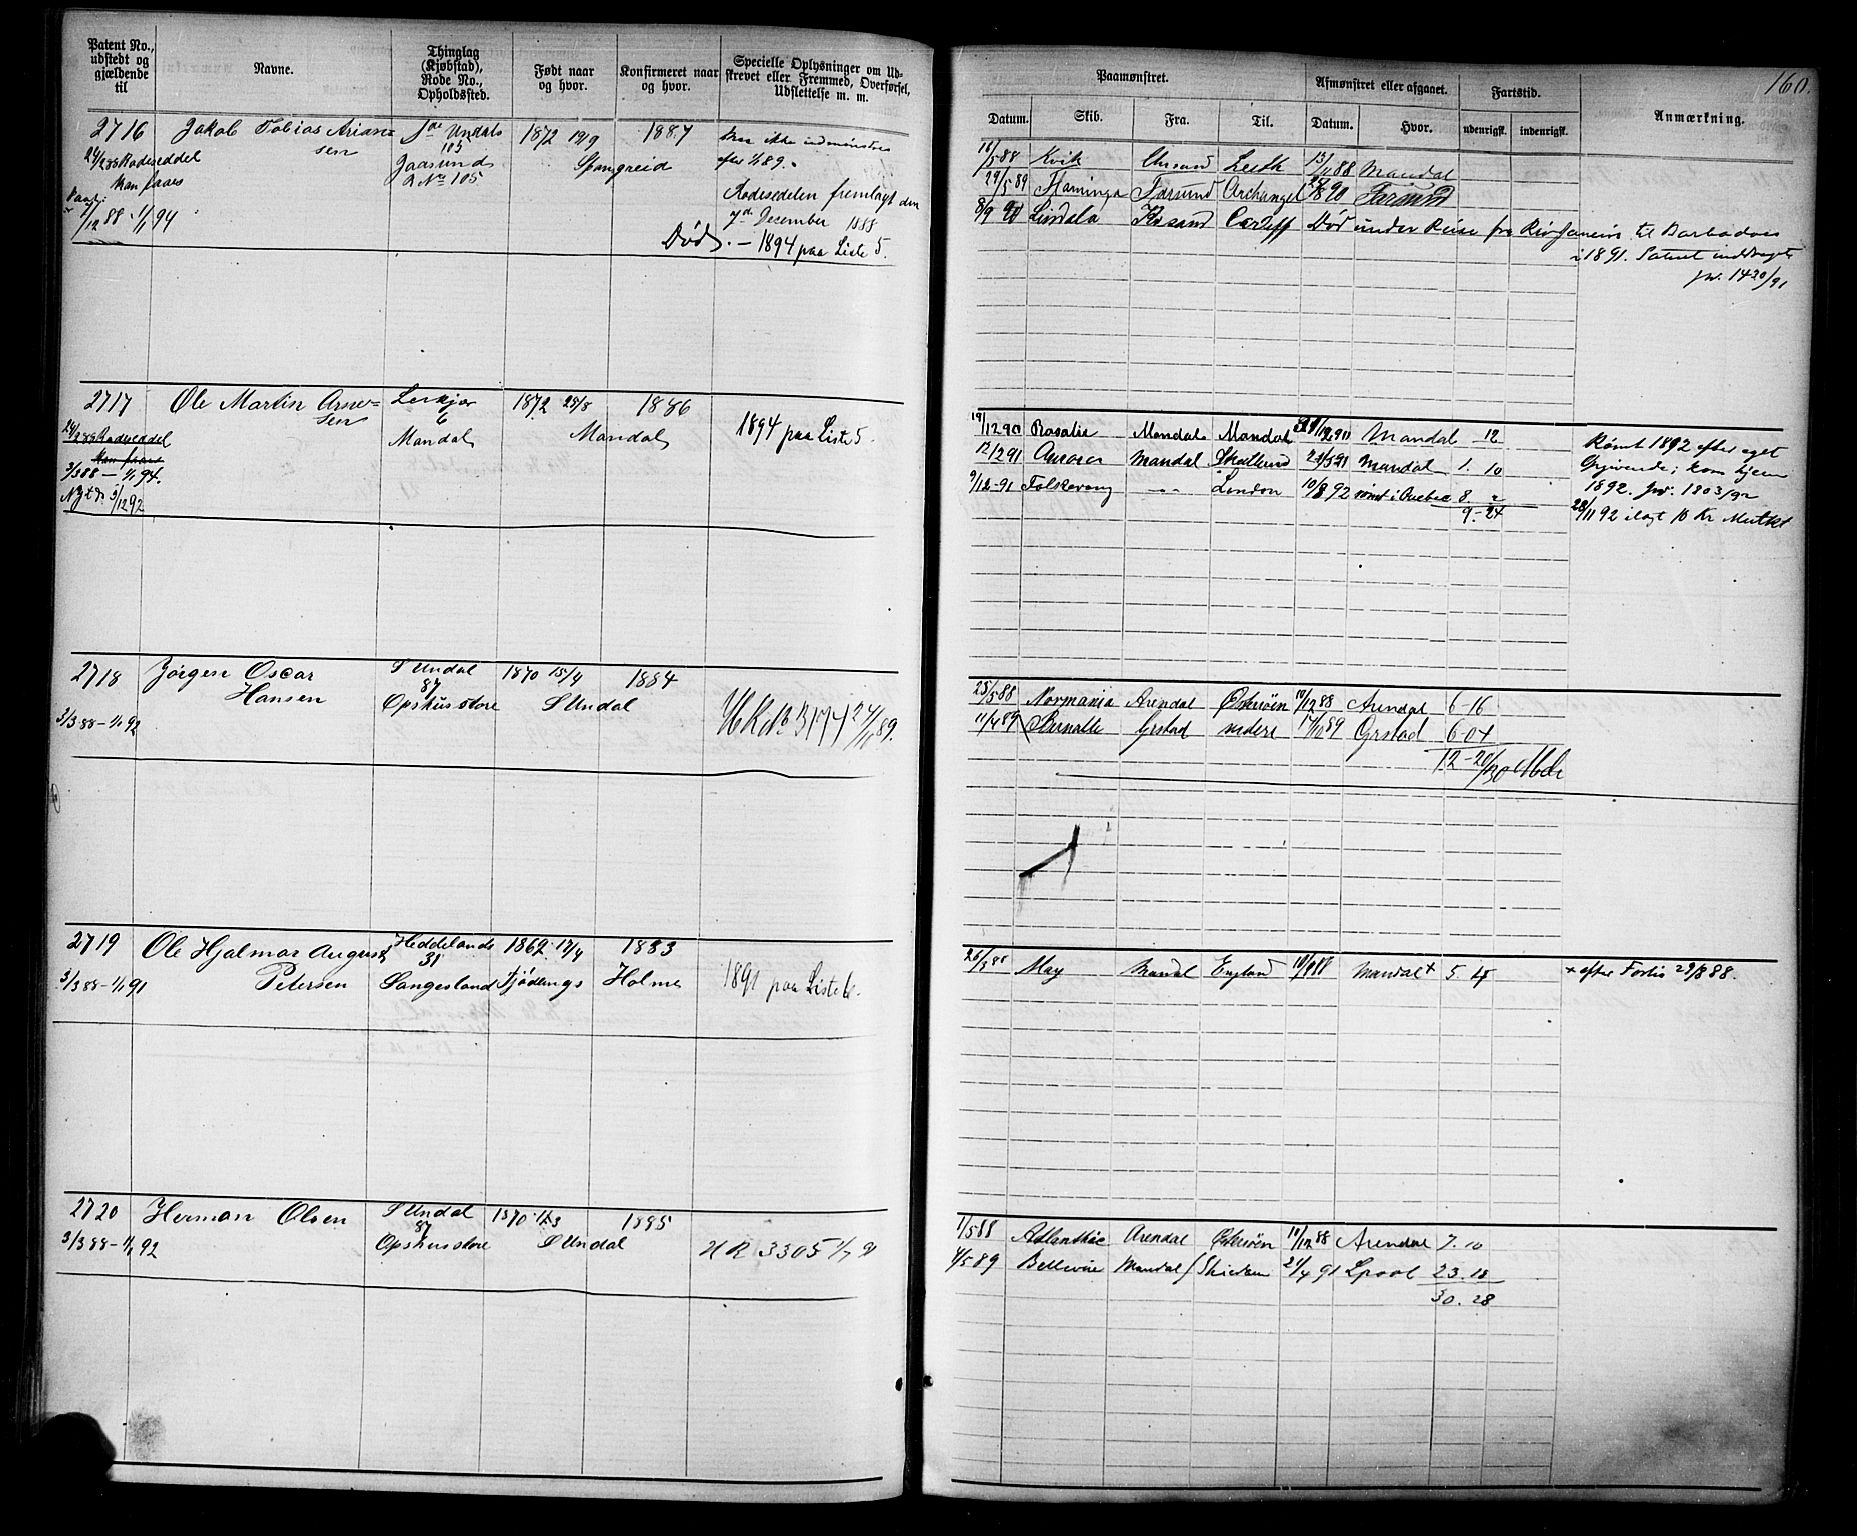 160.
Patent No., udstedt og gjældende til
Navne.
Thinglag (Kjøbstad), Rode No., Opholdssted.
Født naar og hvor.
Konfirmeret naar og hvor.
Specielle Oplysninger om Udskrevet eller Fremmed, Overførsel, Udslettelse m. m.
Paamønstret.
Afmønstret eller afgaaet.
Fartstid.
Anmærkning.
Datum. Skib. Fra. Til. Datum. Hvor. udenrigsk. indenrigsk.
2716 Jakob Tobias Arian=
sen
Undals
105
Gaasunds
R No 105
1872 19/9 1887
Spangereid
ikke
Rodeseddel
kan faaes
7/12 88 - 1/1 94
Rodesedelen fremlagt den
7de December 1888
Død. - 1894 paa Liste 5.
16/5 88 Kvik Chrsand Leith 13/11 88 Mandal
29/5 89 Flaminga Farsund Archangel 90 Farsund
8/9 90 Lindala Krsand Cardiff Død under Reise fra Rio Janeiro til Barbadoes
i 1891. Patent inddraget
jw. 1420/91
2717 Ole Martin Arne=
sen
Lerkjær
6
Mandal
1872 28/8 1886
Mandal
1894 paa Liste 5.
Rodeseddel
kan faaes
3/3 88 - 1/1 94.
5/12 92
19/12 90 Rosalie Mandal Mandal Mandal 12
12/2 91 Aurora Mandal Skotland 21/5 91 Mandal 1. 10
9/12 - 91 Folkevang - „ - London 10/8 92 rømt i Quebec 8 „
9. - 24
Rømt 1892 efter eget
Opgivende; kom hjem
1892. jw. 1803/92
28/11 92 ilagt 16 Kr Mulkt
2718 Jørgen Oscar
Hansen
S Undal
87
Opshusstore
1870 15/4 1884
S Undal
3/3 88 - 1/1 92
H R No 3174 24/11 89.
25/5 88 Normania Arendal Østersøen 10/12 88 Arendal 6-16
11/4 89 Grstad videre 17/10 89 Grstad 6-04
12-20/30
2719 Ole Hjalmar August
Petersen
Heddelands
31
Sangesland
1862 17/4 1883
Holme
3/3 88 - 1/1 91
1891 paa Liste
May Mandal England Mandal + 5
+ efter Fortis 29/8 88.
2720 Herman Olsen
S Undal
87
Opshusstore
1870 1885
S Undal
3/3 88 - 1/1 92
H R 3305 1/7 91
1/5 88 Atlantic Arendal Østersøen 10/12 88 Arendal 7. 10
4/5 89 Bellevüe Mandal 21/4 91 Lpool 23. 18
30. 28